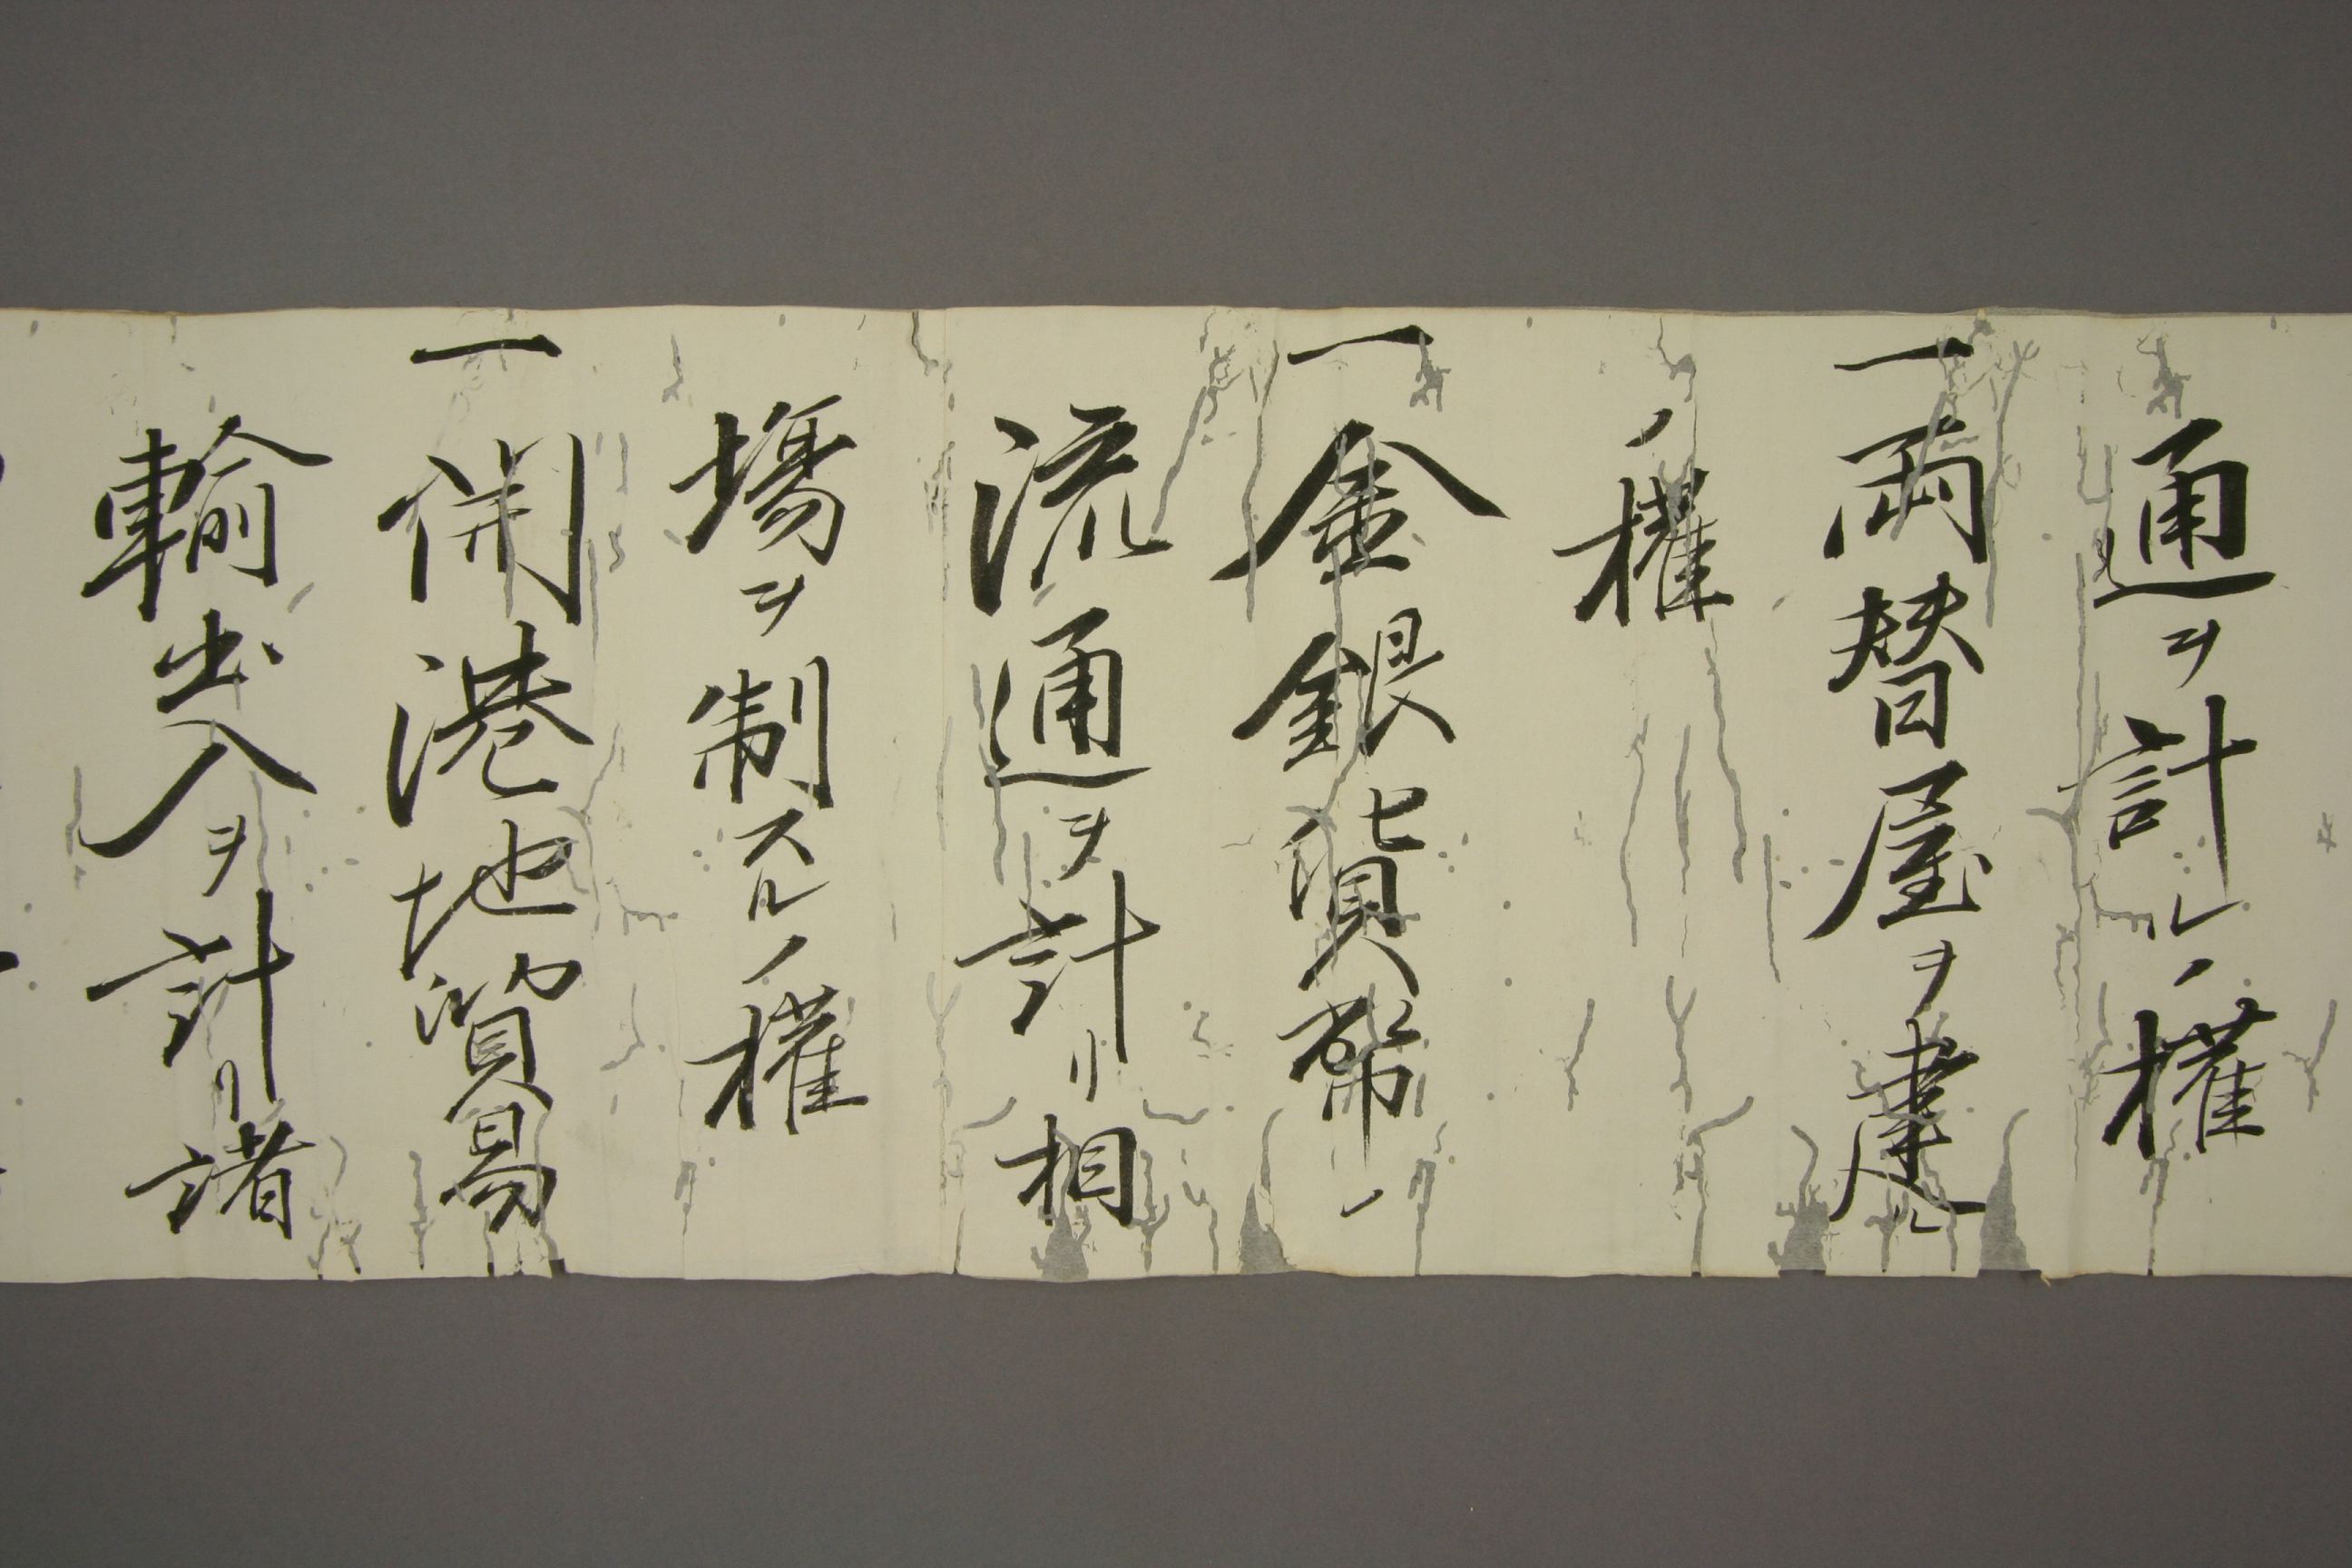 通ヲ計ルノ權
一両替屋ヲ建ル
ノ權
一金銀貨幣ノ
流通ヲ計リ相
場ヲ制スルノ權
一開港地貿易
輸出入ヲ計リ諸